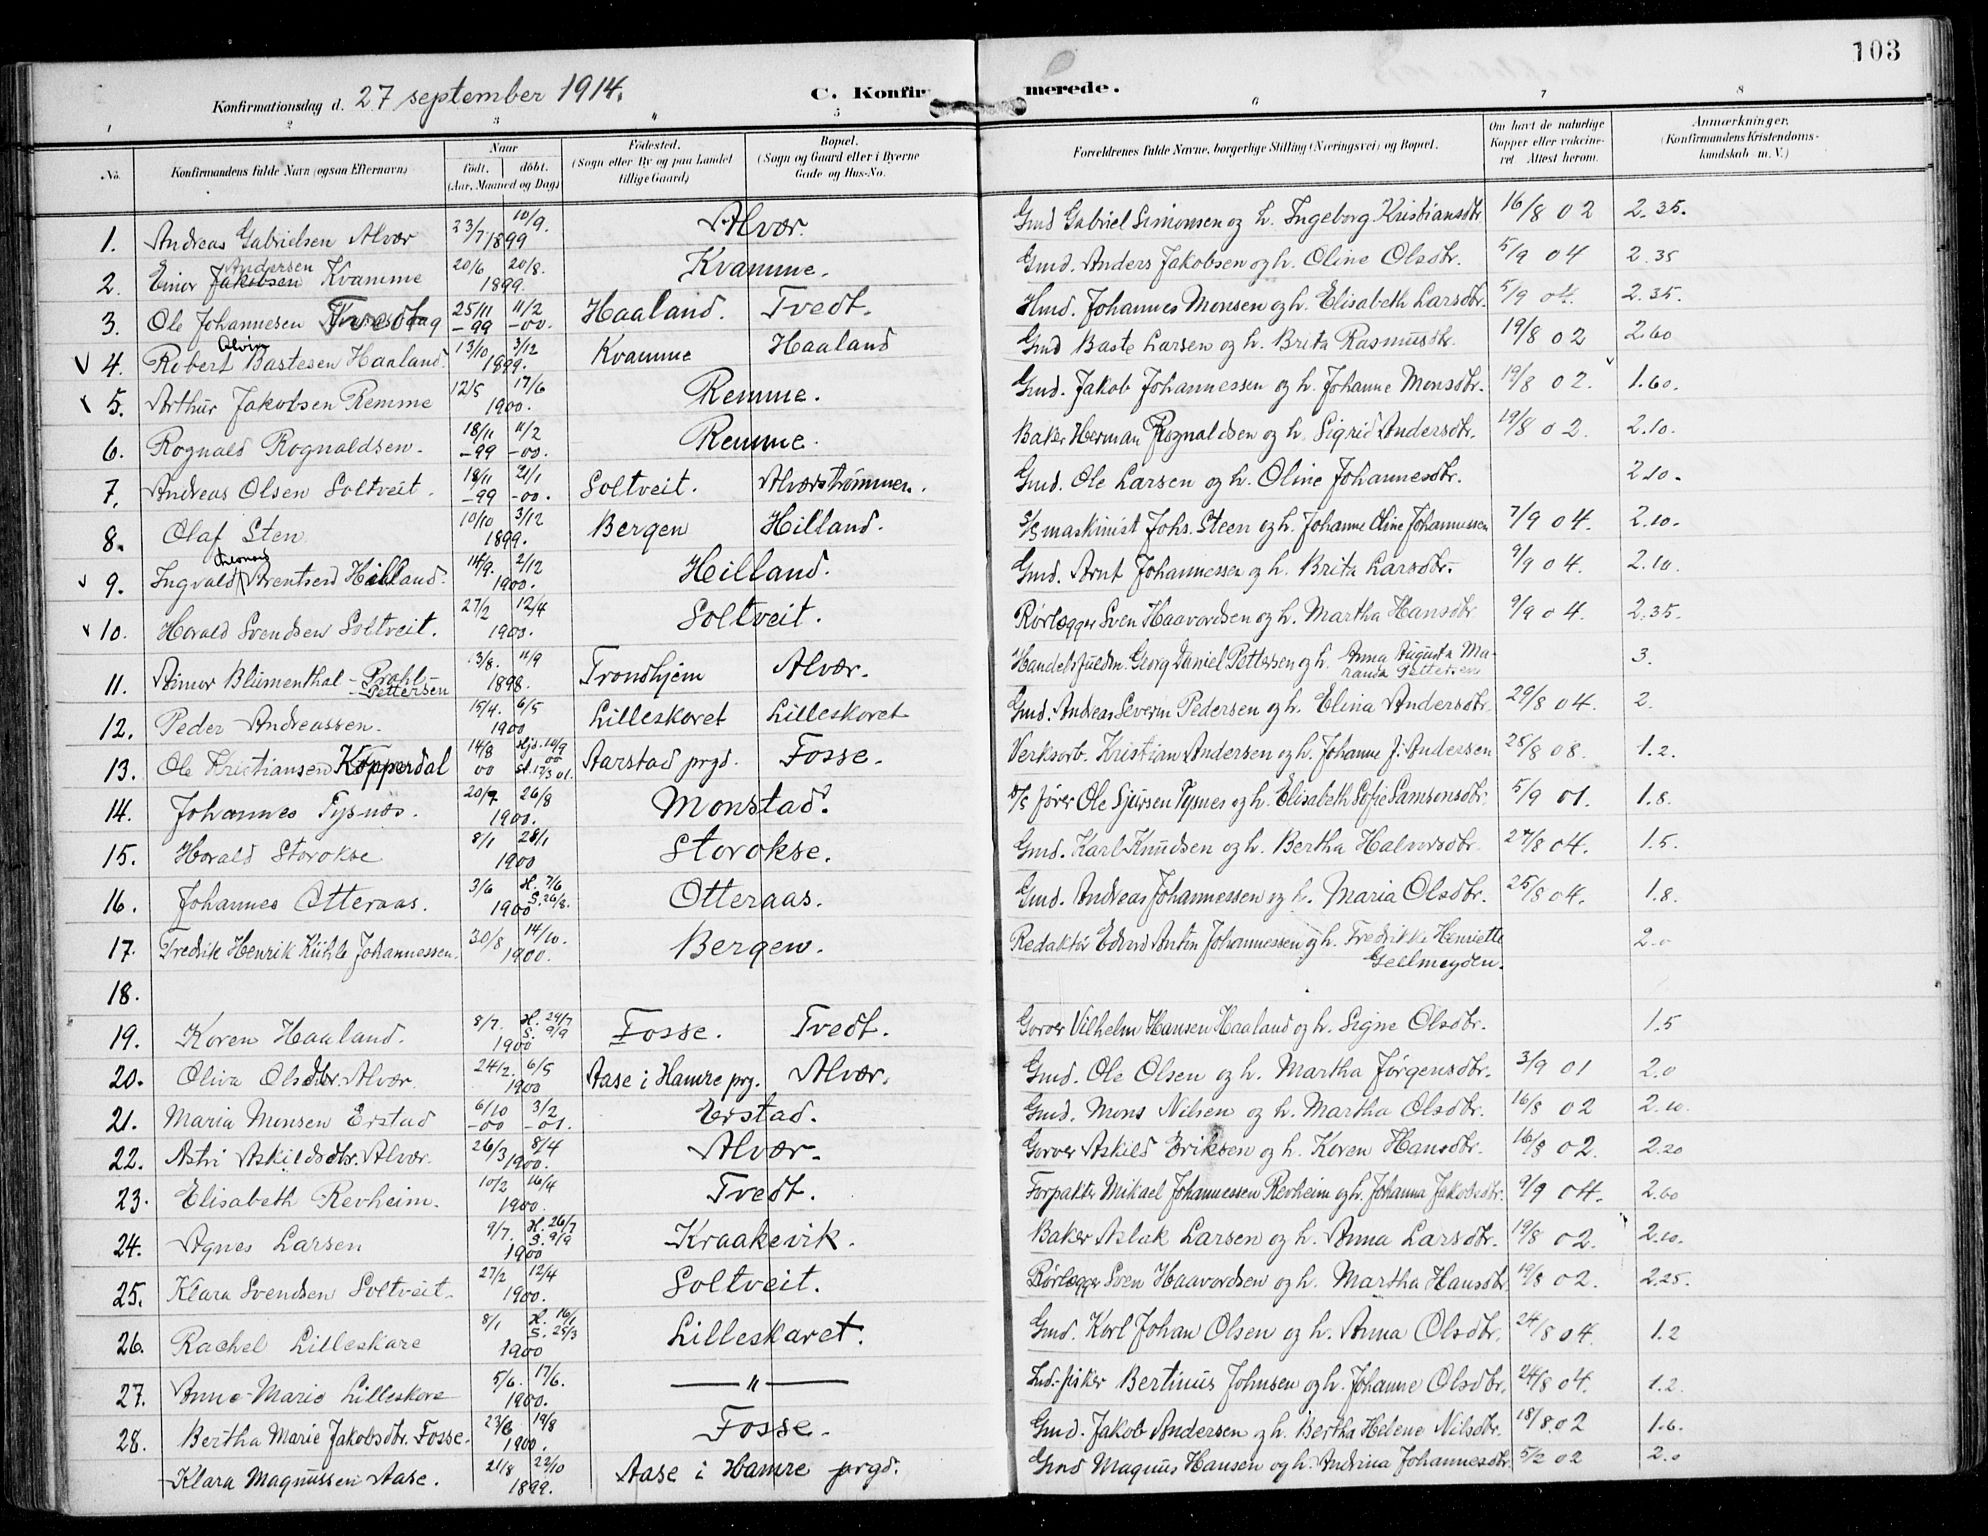 103
Konfirmationsdag d. 27 september 1914. C. Konfirmerede.
1 2 3 4 5 6 7 8
No. Konfirmandens fulde Navn (ogsaa Efternavn) Naar født. døbt. (Aar, Maaned og Dag) Fødested. (Sogn eller By og paa Landet tillige Gaard) Bopæl. (Sogn og Gaard eller i Byerne Gade og Hus-No. Forældrenes fulde Navne, borgerlige Stilling (Næringsvei) og Bopæl. Om havt de naturlige Kopper eller vakcineret Attest herom. Anmærkninger. (Konfirmandens Kristendomskundskab m. V.)
1. Andreas Gabrielsen Alvær 23/7 1899 10/9. Alvær. Gmd Gabriel Simonsen og h. Ingeborg Kristiansdtr. 16/8 02 2.35.
2. Einar Jakobsen Andersen Kvamme 20/6 20/8. 1899. Kvamme. Gmd. Anders Jakobsen og h. Oline Olsdtr. 5/9 04 2.35
3. Ole Johannesen Tvedt 25/11 -99 11/2 -00. Haaland. Tvedt. Hmd. Johannes Monsen og h. Elisabeth Larsdtr. 5/9 04. 2.35.
4. Robert Alvin Bastesen Haaland. 13/10 3/12 1899. Kvamme Haaland Gmd Baste Larsen og h. Brita Rasmusdtr. 19/8 02 2.60
5. Arthur Jakobsen Remme 12/5 17/6 1900. Remme. Gmd. Jakob Johannessen og h. Johanne Monsdtr. 19/8 02. 1.60.
6. Rognald Rognaldsen. 18/11 -99 11/2 -00. Remme. Baker Herman Rognaldsen og h. Sigrid Andersdtr. 19/8 02. 2.10.
7. Andreas Olsen Soltveit. 18/11 -99 21/1 -00. Soltveit. Alværstrømmen. Gmd. Ole Larsen og h. Oline Johannesdtr. 2.10.
8. Olaf Sten 10/10 3/12 1899. Bergen Hilland. S/S maskinist Johs. Steen og h. Johanne Oline Johannessen 7/9 04. 2.10.
9. Ingvald Arentsen Hilland. 14/9. 2/12 1900. Hilland. Gmd. Arnt Johannessen og h. Brita Larsdtr. 9/9 04. 2.10.
10. Harald Svendsen Soltveit. 27/2 12/4 1900. Soltveit. Rørlægger Sven Haavardsen og h. Martha Hansdtr 9/9 04. 2.35.
11. Aimar Blumenthal-Prahl-Pettersen 3/8. 11/9 1898. Trondhjem Alvær. Handelsfuldm. Georg Daniel Pettersen og h. Anna Augusta Maranda Pettersen 3.
12. Peder Andreassen. 15/4. 6/5 1900 Lilleskaret Lilleskaret Gmd. Andreas Severin Pedersen og h. Elina Andersdtr. 29/8 04. 2.
13. Ole Kristiansen Kopperdal 14/8 00 Hjd. 14/9 00 st. 17/3 01. Aarstad prgd. Fosse. Verksarb. Kristian Andersen og h. Johanne J. Andersen 25/8 08. 1.2.
14. Johannes Tysnæs. 20/7 26/8 1900. Monstad. S/S fører Ole Sjursen Tysnes og h. Elisabeth Sofie Samsonsdtr. 5/9 01. 1.8.
15. Harald Storokse 8/1 28/1 1900 Storokse. Gmd. Karl Knudsen og h. Bertha Halvorsdtr. 27/8 04. 1.5.
16. Johannes Otteraas. 3/6 H. 7/6 S. 26/8. 1900 Otteraas. Gmd. Andreas Johannessen og h. Maria Olsdtr. 25/8 04. 1.8.
17. Fredrik Henrik Kühle Johannessen. 30/8 14/10. 1900. Bergen. Redaktør Edvard Antin Johannessen og h. Fredrikke Henriette Gellmeyden. 2.0
18.
19. Karen Haaland. 8/7. H. 24/7 S. 9/9 1900 Fosse. Tvedt. Garver Vilhelm Hansen Haaland og h. Signe Olsdtr. 1.5
20. Oliva Olsdtr. Alvær. 24/2. 6/5 1900 Aase i Hamre prg. Alvær. Gmd. Ole Olsen og h. Martha Jørgensdtr. 3/9 01 2.0
21. Maria Monsen Erstad 6/10 -00 3/2 -01. Erstad. Gmd. Mons Nilsen og h. Martha Olsdtr. 16/8 02 2.10.
22. Astri Askildsdtr. Alvær. 26/3 8/4 1900. Alvær. Garver Askild Eriksen og h. Karen Hansdtr. 16/8 02. 2.20
23. Elisabeth Revheim. 10/2 16/4 1900. Tvedt. Forpakter Mikael Johannessen Revheim og h. Johanna Jakobsdtr. 9/9 04. 2.60
24. Agnes Larsen 9/7. H. 26/7 S. 9/9 1900 Kraakevik. Baker Aslak Larsen og h. Anna Larsdtr. 19/8 02. 2.10.
25. Klara Svendsen Soltveit. 27/2 12/4 1900. Soltveit. Rørlægger Sven Haavardsen og h. Martha Hansdtr 19/8 02. 2.25.
26. Rachel Lilleskare 8/1 H. 16/1 S. 25/3 1900 Lilleskaret. Gmd. Karl Johan Olsen og h. Anna Olsdtr. 24/8 04. 1.2
27. Anne-Marie Lilleskare 5/6. 17/6. 1900. — " — Ind.-fisker Bertinus Johnsen og h. Johanne Olsdtr. 24/8 04. 1.2.
28. Bertha Marie Jakobsdtr. Fosse. 23/6 19/8 1900. Fosse. Gmd. Jakob Andersen og h. Bertha Helene Nilsdtr. 18/8.02 1.6.
Klara Magnussen Aase. 21/8 22/10 1899. Aase i Hamre prgd. Gmd Magnus Hansen og h. Andrina Johannesdtr. 5/2 02 2.0